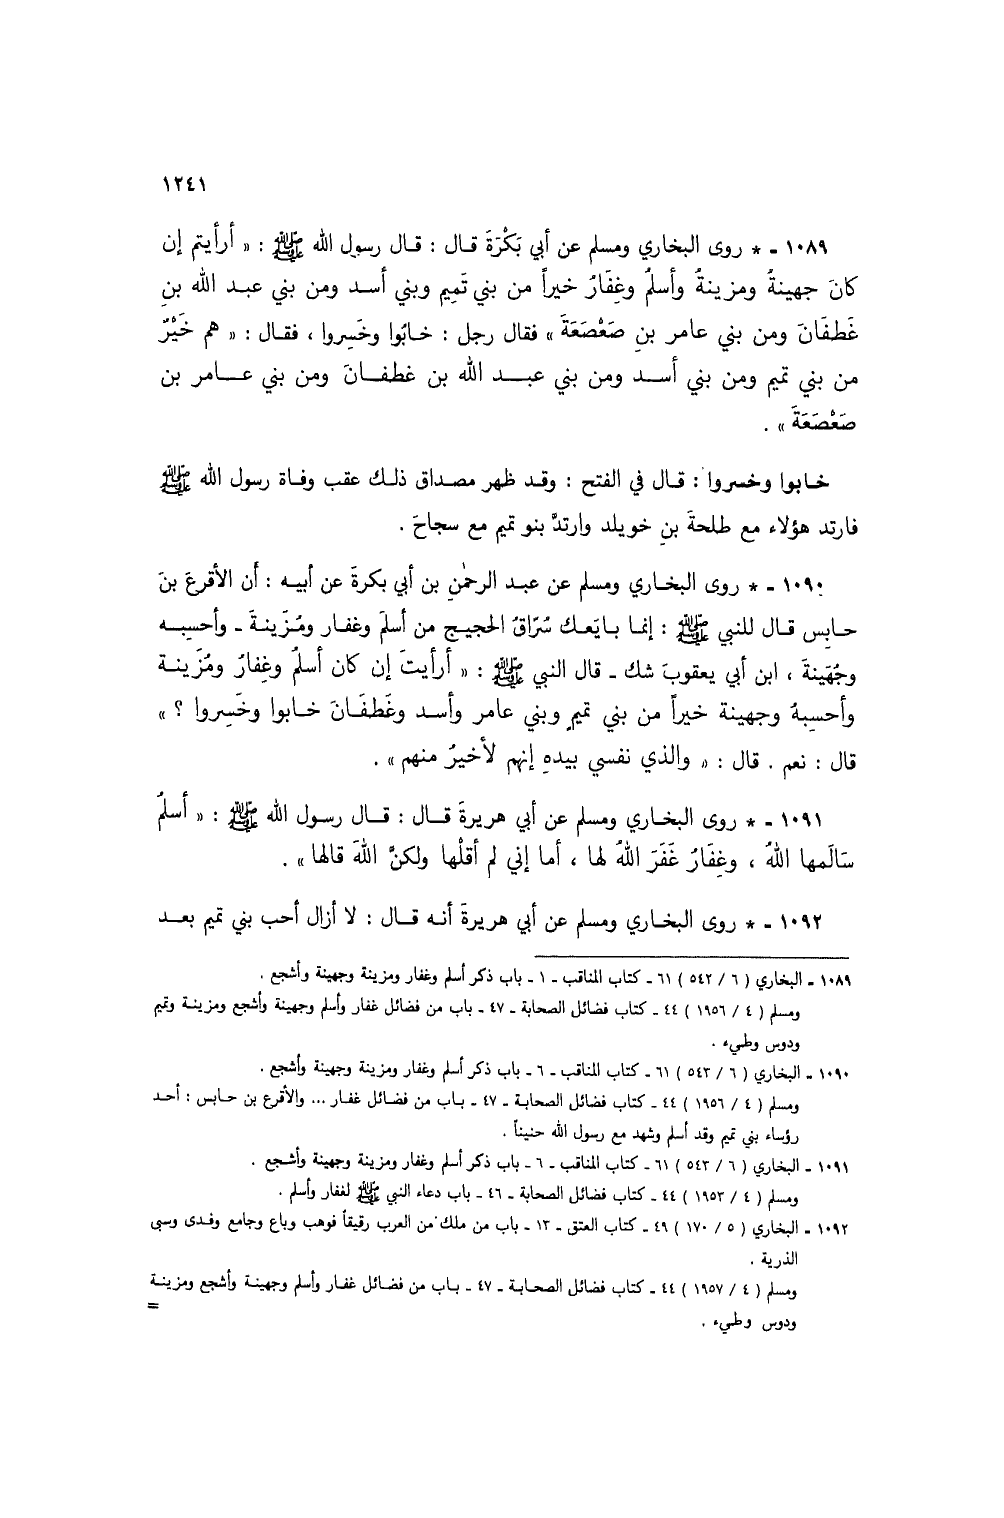 ١٢٤١
١٠٨٩ - * روى البخاري ومسلم عن أبي بَكْرَةَ قال : قال رسول الله ﷺ : « أرأيتم إن
كانَ جهينةُ ومزينةُ وأسلمُ وغِفَارُ خيراً من بني تَمِيم وبني أسد ومن بني عبد الله بنِ
غَطفَانَ ومن بني عامر بنِ صَعْصَعَةَ » فقال رجل : خابُوا وخَسِروا ، فقال : « هم خَيْرٌ
من بني تميم ومن بني أسد ومن بني عبد الله بن غطفانَ ومن بني عامر بن
صَعْصَعَةَ » .
خابوا وخسروا : قال في الفتح : وقد ظهر مصداق ذلك عقب وفاة رسول الله ﷺ
فارتد هؤلاء مع طلحةَ بنِ خويلد وارتدَّ بنو تميم مع سجاحَ .
١٠٩٠ - * روى البخاري ومسلم عن عبد الرحمٰنِ بن أبي بكرةَ عن أبيه : أن الأقرعَ بنَ
حابِس قال للنبي ﷺ : إنما بايَعك سُرّاقُ الحجيج من أسلمَ وغفار ومُزَينةَ - وأحسِبه
وجُهَينةَ ، ابن أبي يعقوبَ شك - قال النبي ﷺ : « أرأيتَ إن كان أسلمُ وغِفارُ ومُزَينة
وأحسِبهُ وجهينة خيراً من بني تميمٍ وبني عامر وأسد وغَطفَانَ خابوا وخَسِروا ؟ »
قال : نعم . قال : « والذي نفسي بيدهِ إنهم لأخيرُ منهم » .
١٠٩١ - * روى البخاري ومسلم عن أبي هريرةَ قال : قال رسول الله ﷺ : « أسلمُ
سَالَمها اللهُ ، وغِفَارُ غَفَرَ اللهُ لها ، أما إني لم أقلْها ولكنَّ اللهَ قالها » .
١٠٩٢ - * روى البخاري ومسلم عن أبي هريرةَ أنه قال : لا أزال أحب بني تميم بعد
١٠٨٩ - البخاري ( ٦ / ٥٤٢ ) ٦١ - كتاب المناقب - ١ - باب ذكر أسلم وغفار ومزينة وجهينة وأشجع .
ومسلم ( ٤ / ١٩٥٦ ) ٤٤ - كتاب فضائل الصحابة - ٤٧ - باب من فضائل غفار وأسلم وجهينة وأشجع ومزينة وتميم
ودوس وطيء .
١٠٩٠ - البخاري ( ٦ / ٥٤٣ ) ٦١ - كتاب المناقب - ٦ - باب ذكر أسلم وغفار ومزينة وجهينة وأشجع .
ومسلم ( ٤ / ١٩٥٦ ) ٤٤ - كتاب فضائل الصحابة - ٤٧ - باب من فضائل غفار ... والأقرع بن حابس : أحد
رؤساء بني تميم وقد أسلم وشهد مع رسول الله حنيناً .
١٠٩١ - البخاري ( ٦ / ٥٤٣ ) ٦١ - كتاب المناقب - ٦ - باب ذكر أسلم وغفار ومزينة وجهينة وأشجع .
ومسلم ( ٤ / ١٩٥٣ ) ٤٤ - كتاب فضائل الصحابة - ٤٦ - باب دعاء النبي ﷺ لغفار وأسلم .
١٠٩٢ - البخاري ( ٥ / ١٧٠ ) ٤٩ - كتاب العتق - ١٣ - باب من ملك من العرب رقيقاً فوهب وباع وجامع وفدى وسبى
الذرية .
ومسلم ( ٤ / ١٩٥٧ ) ٤٤ - كتاب فضائل الصحابة - ٤٧ - باب من فضائل غفار وأسلم وجهينة وأشجع ومزينة
ودوس وطيء . =